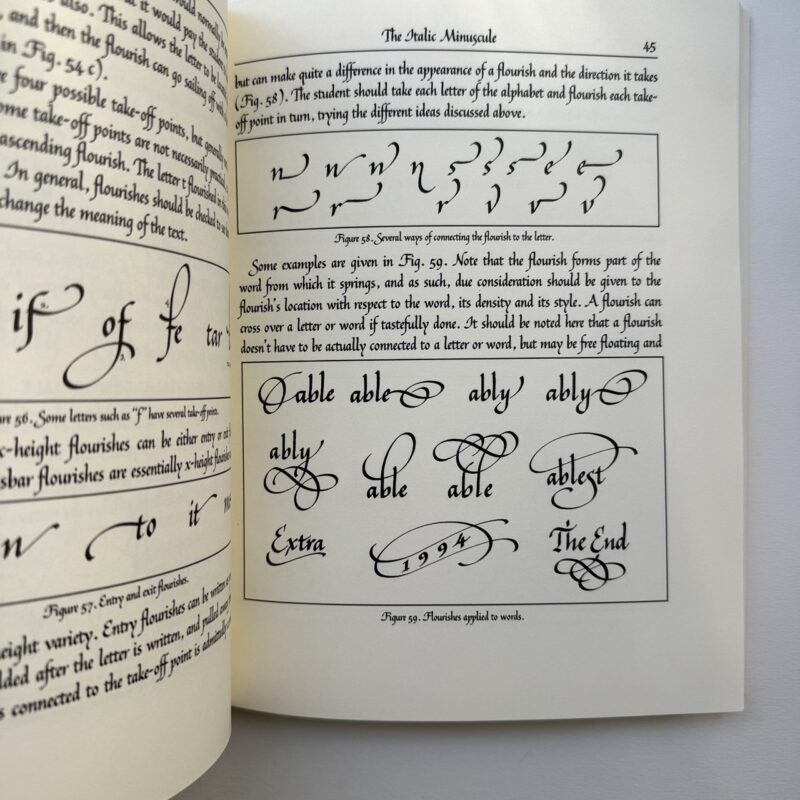 would normally
also. This allows the letter to be
, and then the flourish can go sailing off
in Fig. 54 c).
four possible take-off points, but generally
some take-off points are not necessarily
ascending flourish. The letter t flourished in
In general, flourishes should be checked to
change the meaning of the text.
if of fe tar
Figure 56. Some letters such as "f" have several take-off points.
x-height flourishes can be either entry or
flourishes are essentially x-height
n to it
Figure 57. Entry and exit flourishes.
variety. Entry flourishes can be written
added after the letter is written, and pulled
connected to the take-off point is admittedly
The Italic Minuscule
45
but can make quite a difference in the appearance of a flourish and the direction it takes
(Fig. 58). The student should take each letter of the alphabet and flourish each take-
off point in turn, trying the different ideas discussed above.
n n n n s s s e e
r r r v v v
Figure 58. Several ways of connecting the flourish to the letter.
Some examples are given in Fig. 59. Note that the flourish forms part of the
word from which it springs, and as such, due consideration should be given to the
flourish's location with respect to the word, its density and its style. A flourish can
cross over a letter or word if tastefully done. It should be noted here that a flourish
doesn't have to be actually connected to a letter or word, but may be free floating and
able able ably ably
ably able able ablest
Extra 1994 The End
Figure 59. Flourishes applied to words.